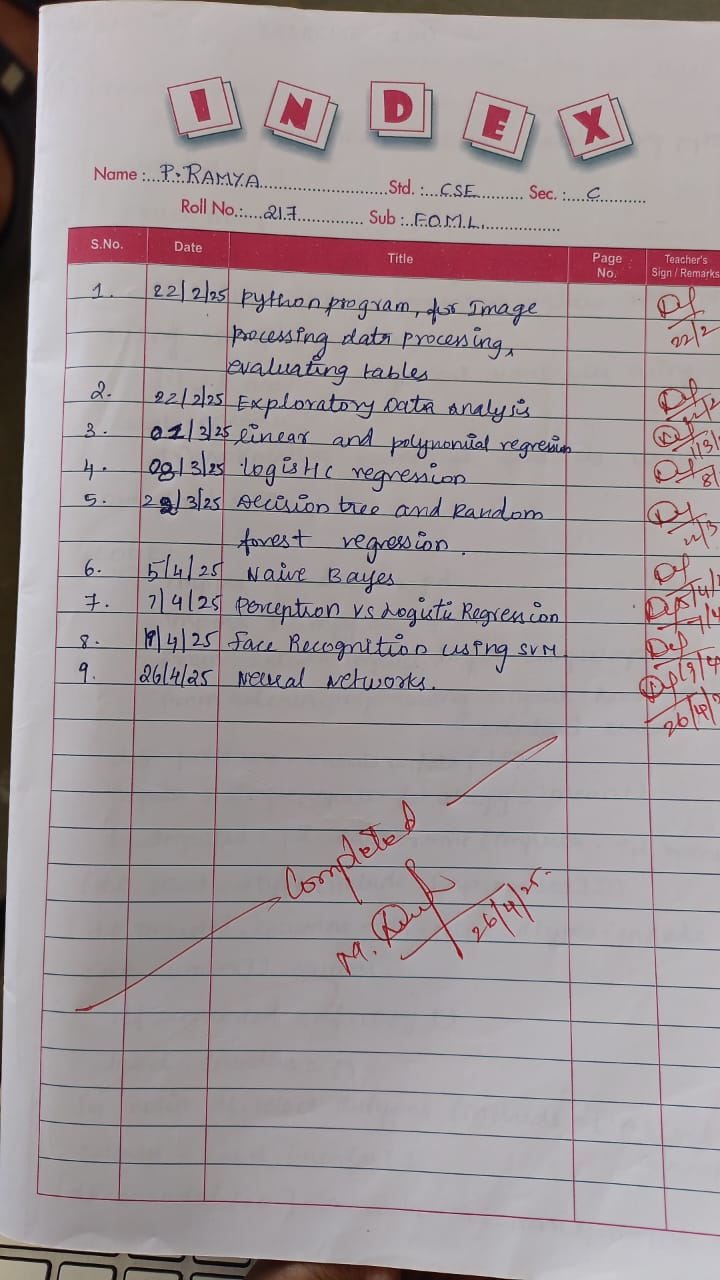 INDEX
Name :...P. RAMYA...Std. :...CSE...Sec. :...C...
Roll No.:...217...Sub :..F.O.M.L....
S.No. Date Title Page No. Teacher's Sign / Remarks
1. 22/2/25 Python program, for Image 22/2
processing data processing,
evaluating tables
2. 22/2/25 Exploratory Data Analysis
3. 01/3/25 linear and polynomial regression
4. 08/3/25 logistic regression
5. 22/3/25 Decision tree and Random
forest regression.
6. 5/4/25 Naive Bayes
7. 7/4/25 Perception vs Logistic Regression
8. 19/4/25 Face Recognition using SVM
9. 26/4/25 Neural Networks.
Completed
M. 26/4/25.